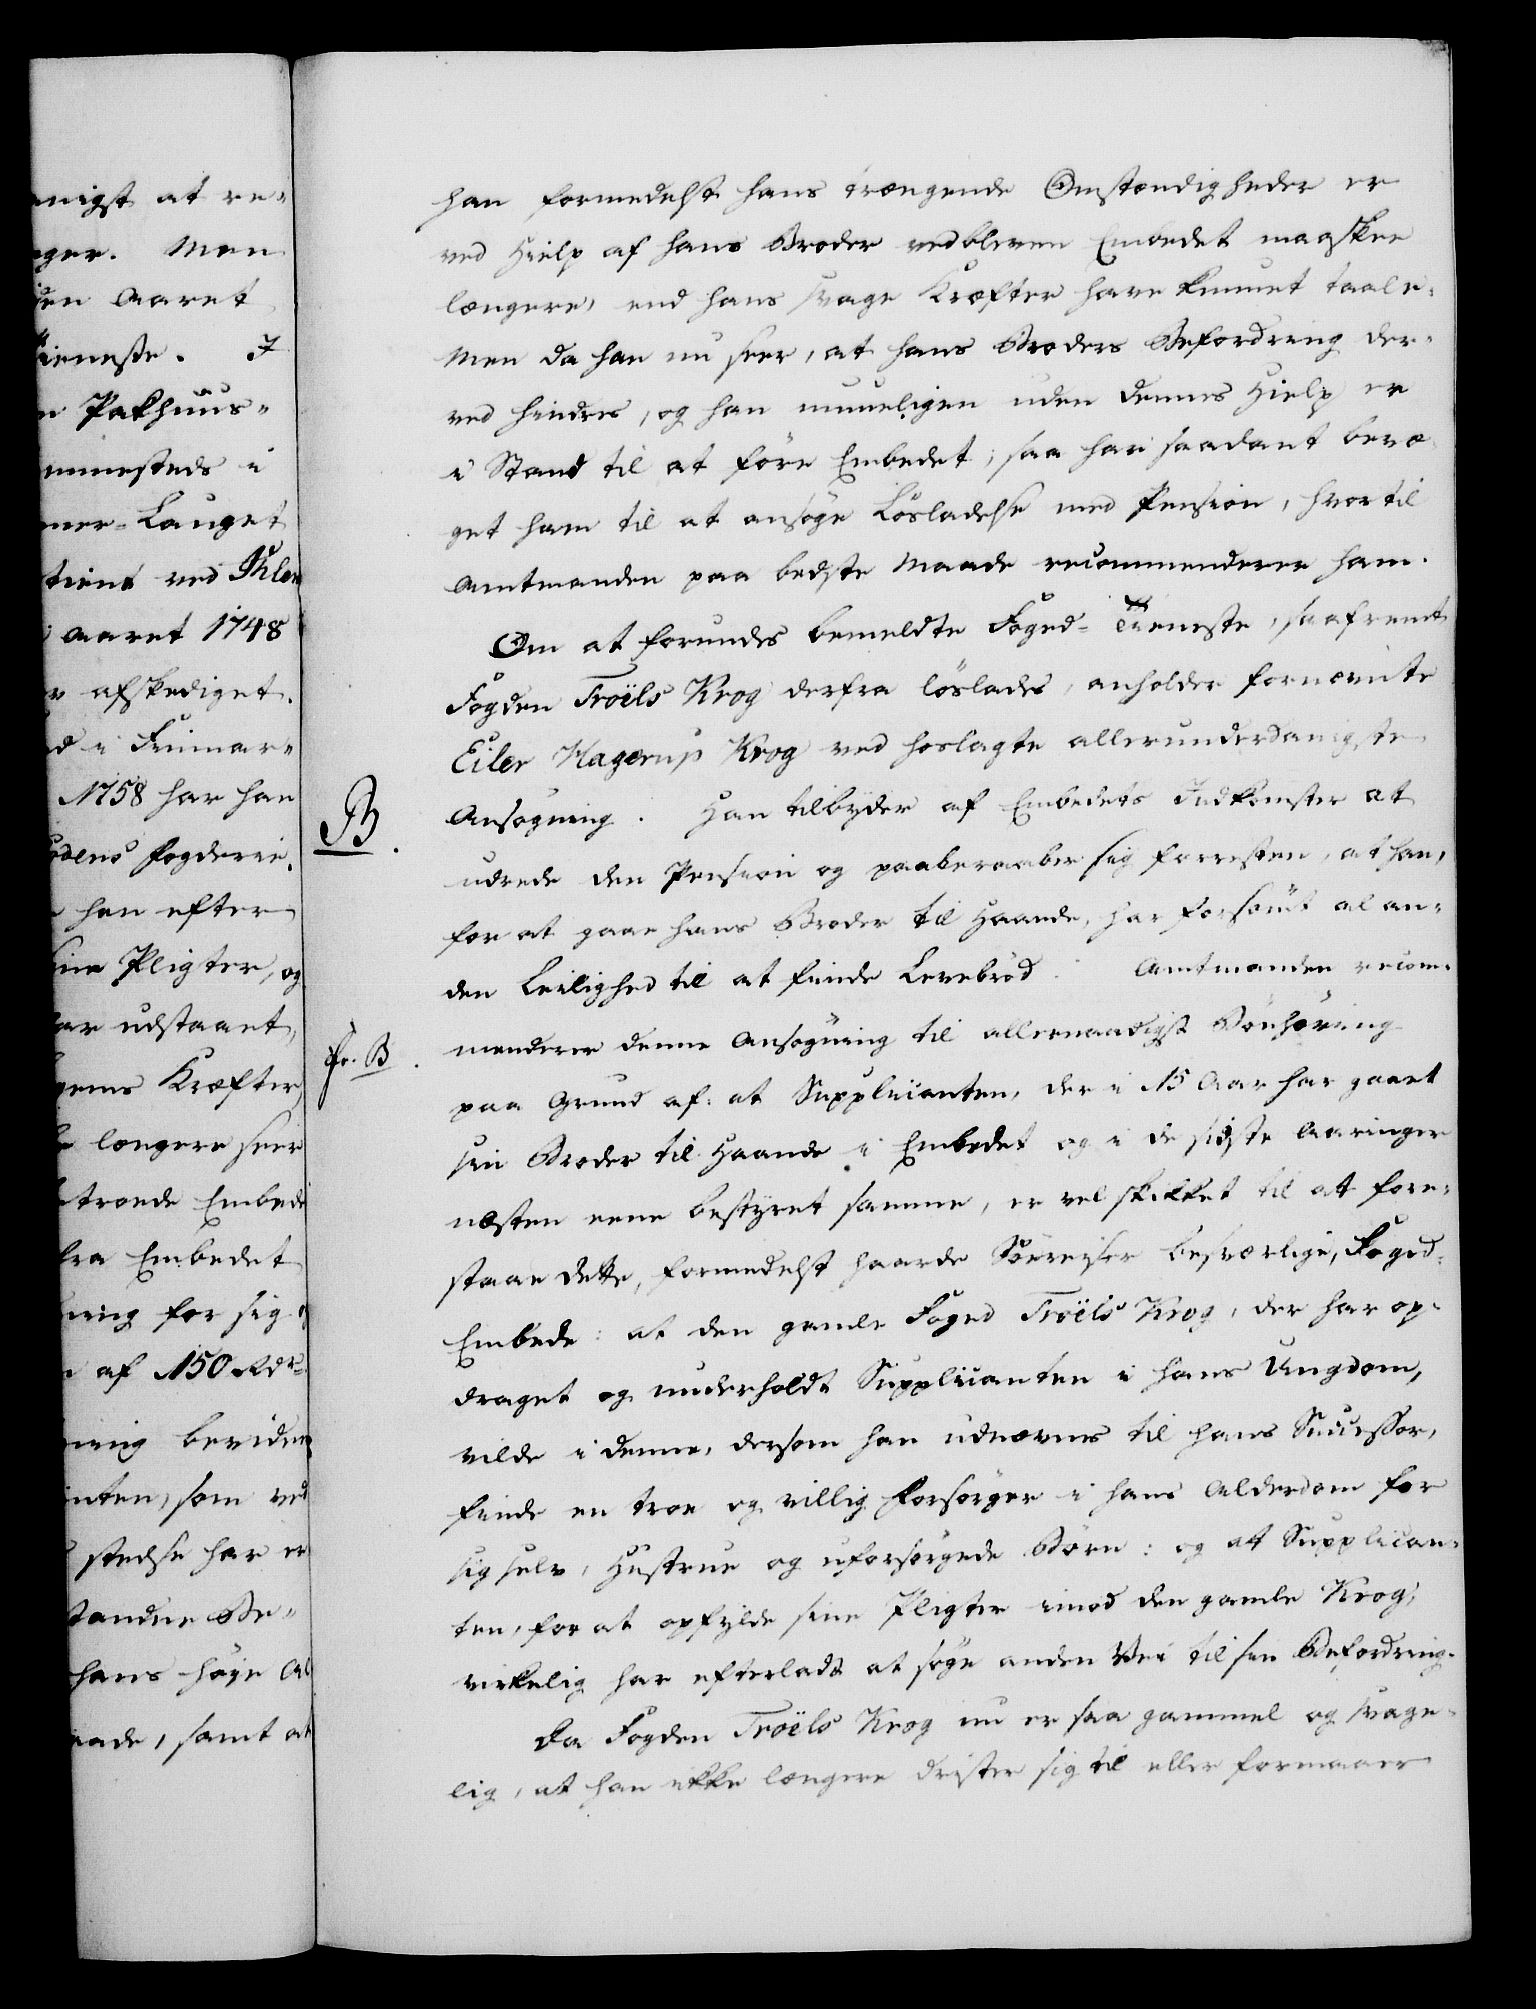 anigst at re-
ger. Men
den Aaret
ieneste. I
n Pakhuus-
mmesteds i
mer-Lauget
tient ved Ihlen
Aaret 1748
r afskediget.
d i Finmar-
1758 har han
odens fogderie.
han efter
ine Pligter, og
ar udstaaet,
gems Kræfter,
længere seer
troede Embede
fra Embedet
ning for sig
af 150 Rdr.
ning bevidner
nten, som ved
stedse har er
tandne Be-
hans høye Al
aade, samt at
han formedelst hans trængende Omstændigheder er
ved Hielp af hans Broder vedbleven Embedet maaskee
længere, end hans svage Kræfter have kunnet taale.
Men da han nu seer, at hans Broders Befordring der-
ved hindres, og han umueligen uden dennes Hielp er
i Stand til at före Embedet; saa har saadant bevæ
get ham til at ansöge Lösladelse med Pension, hvortil
Amtmanden paa bedste Maade recommenderer ham.
Om at forundes bemeldte Foged-Tieneste, saafremt
Fogden Troëls Krog derfra löslades, anholder fornævnte
Eiler Hagerup Krog ved hoslagte allerunderdanigste
B.
Ansögning. Han tilbyder af Embedets Indkomster at
udrede den Pension og paaberaaber sig forresten, at han,
for at gaae hans Broder til Haande, har forsömt al an-
den Leilighed til at finde Levebröd. Amtmanden recom-
Pr. B.
menderer denne Ansögning til allernaadigst Bönhöring
paa Grund af: at Supplicanten, der i 15 Aar har gaaet
sin Broder til Haande i Embedet og i de sidste Aaringer
næsten eene bestyret samme, er vel skikket til at fore-
staae dette, formedelst haarde Söereiser besværlige, Foged-
Embede: at den gamle Foged Troëls Krog, der har op-
draget og underholdt Supplicanten i hans Ungdom,
vilde i denne, dersom han udnævnes til hans Successor,
finde en troe og villig Forsörger i hans Alderdom for
sig selv, Hustrue og uforsörgede Börn: og at Supplican-
ten, for at opfylde sine Pligter imod den gamle Krog,
virkelig har efterladt at söge anden Vei til sin Befordring.
Da Fogden Troëls Krog nu er saa gammel og svage-
lig, at han ikke længere drister sig til eller formaaer